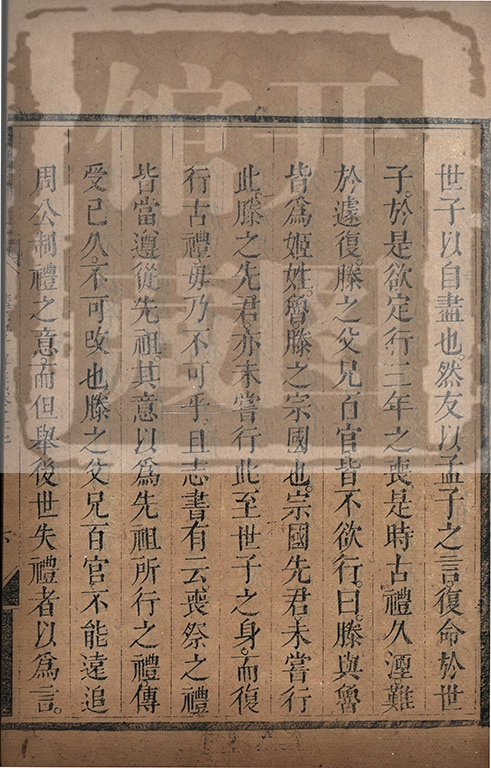 世子以自盡也。然友以孟子之言。復命於世
子。於是欲定行三年之喪。是時古禮久湮。難
於遽復。滕之父兄百官皆不欲行。曰。滕與魯
皆爲姬姓。魯滕之宗國也。宗國先君。未嘗行
此。滕之先君。亦未嘗行此。至世子之身。而復
行古禮。毋乃不可乎。且志書有云。喪祭之禮
皆當遵從先祖。其意以爲先祖所行之禮。傳
受已久。不可改也。滕之父兄百官不能遠追
周公制禮之意。而但舉後世失禮者以爲言。